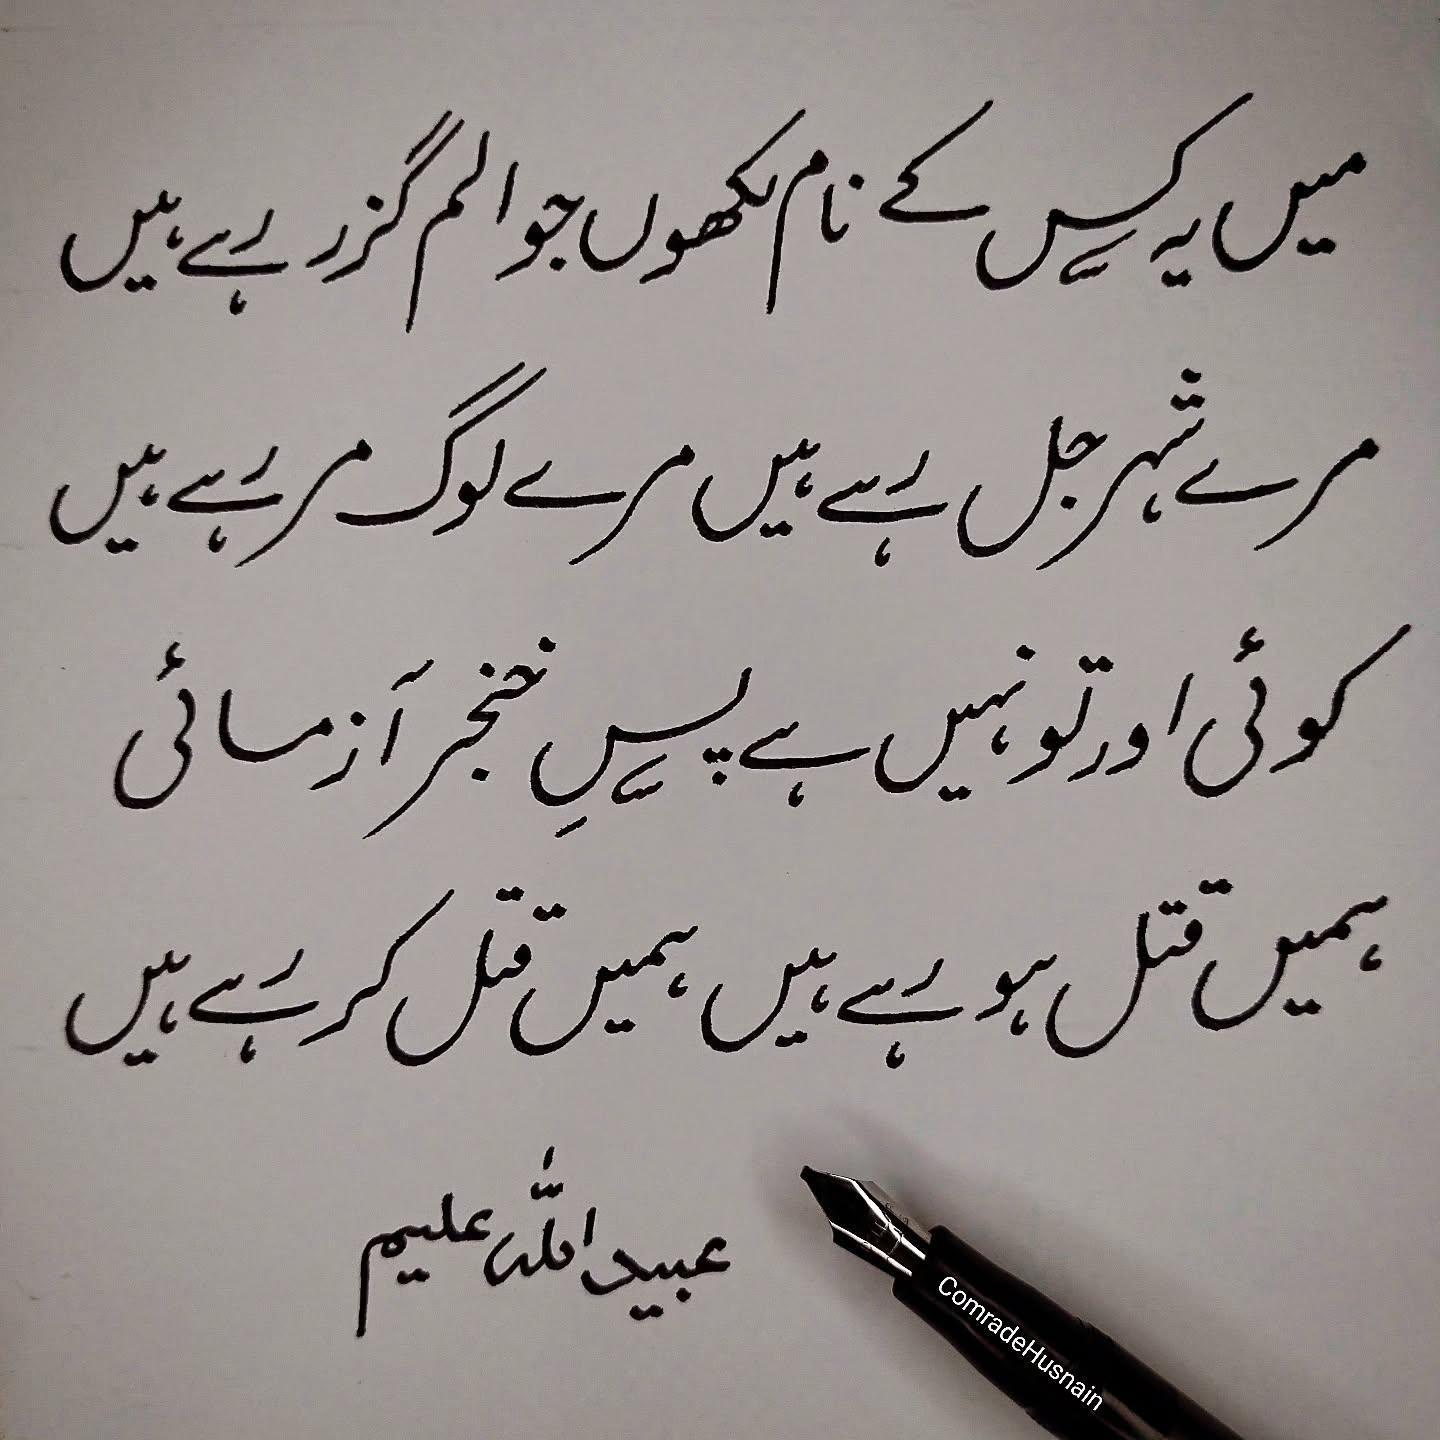 میں یہ کس کے نام لکھوں جو الم گزر رہے ہیں
مرے شہر جل رہے ہیں مرے لوگ مر رہے ہیں
کوئی اور تو نہیں ہے پسِ خنجر آزمائی
ہمیں قتل ہو رہے ہیں ہمیں قتل کر رہے ہیں
عبید اللہ علیم
ComradeHusnain